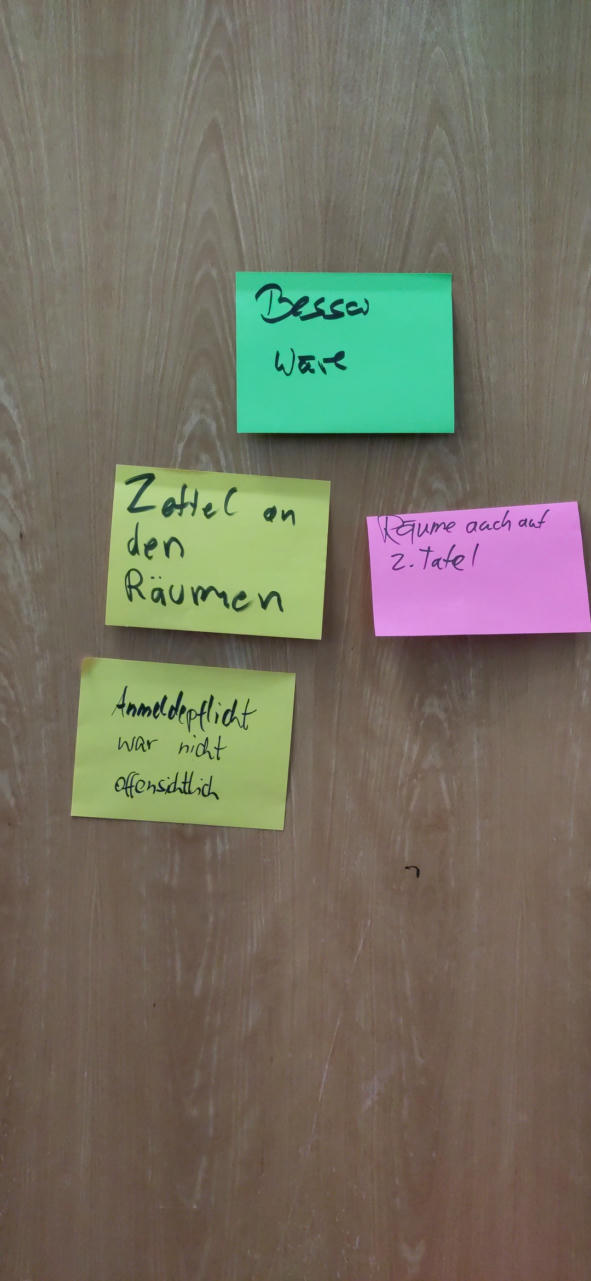 Besser
wäre
Zettel an
den
Räumen
Räume auch auf
2. Tafel
Anmeldepflicht
war nicht
offensichtlich